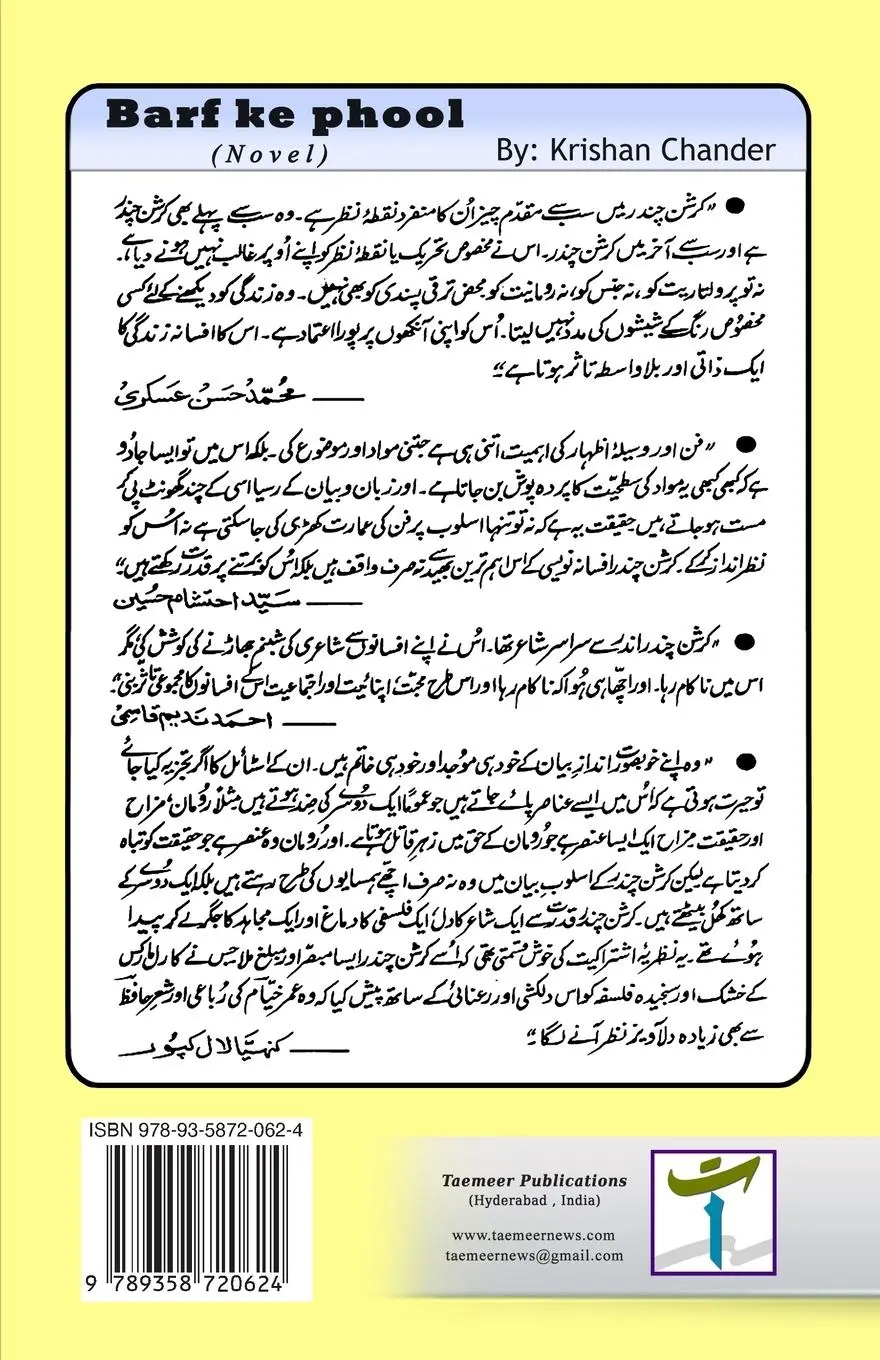 Barf ke phool
(Novel)
By: Krishan Chander
● "کرشن چندر میں سب سے مقدّم چیز اُن کا منفرد نقطۂ نظر ہے۔ وہ سب سے پہلے بھی کرشن چندر
ہے اور سب سے آخر میں کرشن چندر۔ اس نے مخصوص تحریک یا نقطۂ نظر کو اپنے اُوپر غالب نہیں ہونے دیا ہے۔
نہ تو پرولتاریت کو، نہ جنس کو، نہ رومانیت کو محض ترقی پسندی کو بھی نہیں۔ وہ زندگی کو دیکھنے کے لئے کسی
مخصُوص رنگ کے شیشوں کی مدد نہیں لیتا۔ اُس کو اپنی آنکھوں پر پورا اعتماد ہے۔ اس کا افسانہ زندگی کا
ایک ذاتی اور بلا واسطہ تاثر ہوتا ہے"
——— محُمّد حَسَن عَسکری
● "فن اور وسیلۂ اظہار کی اہمیت اتنی ہی ہے جتنی مواد اور موضوع کی۔ بلکہ اس میں تو ایسا جادُو
ہے کہ کبھی کبھی یہ مواد کی سطحیّت کا پردہ پوش بن جاتا ہے۔ اور زبان و بیان کے رسیا اسی کے چند گھونٹ پی کر
مست ہو جاتے ہیں حقیقت یہ ہے کہ نہ تو تنہا اسلوب پر فن کی عمارت کھڑی کی جا سکتی ہے نہ اُس کو
نظر انداز کر کے۔ کرشن چندر افسانہ نویسی کے اس اہم ترین بھید سے نہ صرف واقف ہیں بلکہ اُس کو برتنے پر قدرت رکھتے ہیں"
——— سَیّد احتشام حُسین
● "کرشن چندر اندر سے سراسر شاعر تھا۔ اُس نے اپنے افسانوں سے شاعری کی شبنم جھاڑنے کی کوشش کی مگر
اس میں ناکام رہا۔ اور اچھّا ہی ہُوا کہ ناکام رہا اور اس طرح محبّت، اپنائیت اور اجتماعیت اس کے افسانوں کا مجموعی تاثر بنی"
——— احمد ندیم قاسمی
● "وہ اپنے خوبصورت اندازِ بیان کے خود ہی موُجد اور خود ہی خاتم ہیں۔ ان کے اسٹائل کا اگر تجزیہ کیا جائے
تو حیرت ہوتی ہے کہ اُس میں ایسے عناصر پائے جاتے ہیں جو عموماً ایک دُوسرے کی ضد ہوتے ہیں مثلاً رُومان، مزاح
اور حقیقت مزاح ایک ایسا عنصر ہے جو رُومان کے حق میں زہرِ قاتل ہوتا ہے۔ اور رُومان وہ عنصر ہے جو حقیقت کو تباہ
کر دیتا ہے لیکن کرشن چندر کے اسلوبِ بیان میں وہ نہ صرف اچھّے ہمسایوں کی طرح رہتے ہیں بلکہ ایک دُوسرے کے
ساتھ گھُل بیٹھتے ہیں۔ کرشن چندر قُدرت سے ایک شاعر کا دل، ایک فلسفی کا دماغ اور ایک مجاہد کا جگر لے کر پیدا
ہوئے تھے۔ یہ نظریۂ اشتراکیت کی خوش قسمتی تھی کہ اُسے کرشن چندر ایسا مبصّر اور مبلغ ملا جس نے کارل مارکس
کے خشک اور سنجیدہ فلسفہ کو اس دلکشی اور رعنائی کے ساتھ پیش کیا کہ وہ عمر خیّام کی رُباعی اور شعرِ حافظؔ
سے بھی زیادہ دلآویز نظر آنے لگا"
——— کنہیّا لال کپُور
ISBN 978-93-5872-062-4
9 789358 720624
Taemeer Publications
(Hyderabad , India)
www.taemeernews.com
taemeernews@gmail.com